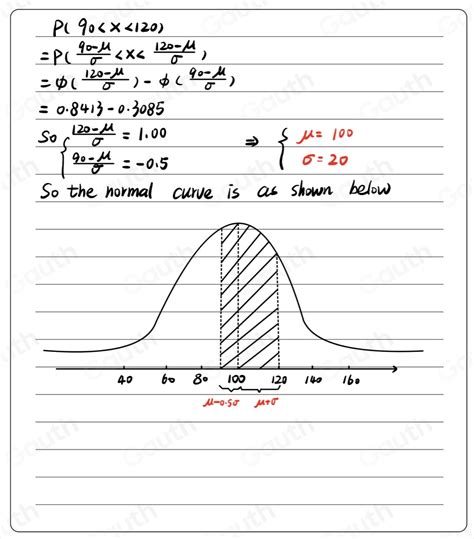 P( 90<X<120)
= P( (90-μ)/σ <X< (120-μ)/σ )
= φ( (120-μ)/σ ) - φ( (90-μ)/σ )
= 0.8413 - 0.3085
So { (120-μ)/σ = 1.00 ⇒ { μ= 100
(90-μ)/σ = -0.5 σ=20
So the normal curve is as shown below
40 60 80 100 120 140 160
μ-0.5σ μ+σ
Gauth